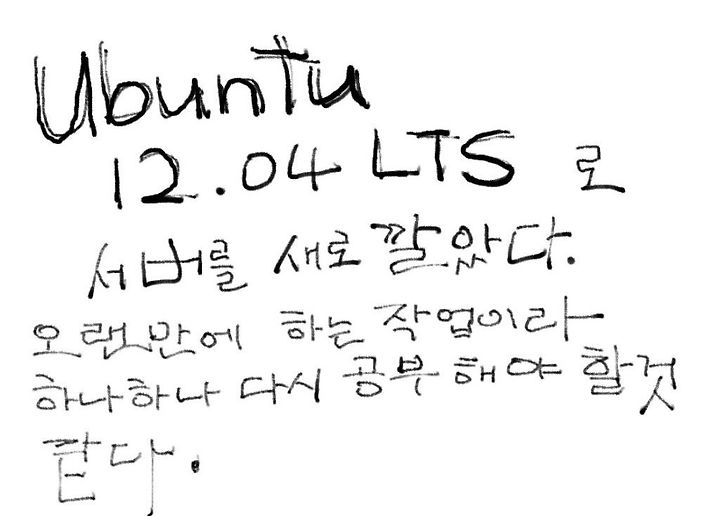 Ubuntu
12.04 LTS 로
서버를 새로 깔았다.
오랜만에 하는 작업이라
하나하나 다시 공부해야 할것
같다.